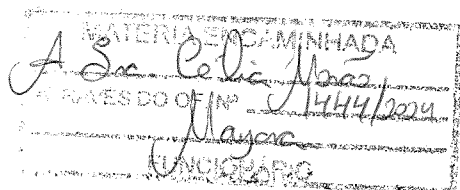 MATÉRIA ENCAMINHADA
A Sra Célia Morás
ATRAVÉS DO OF. Nº 1444/2024
Mayara
FUNCIONÁRIO